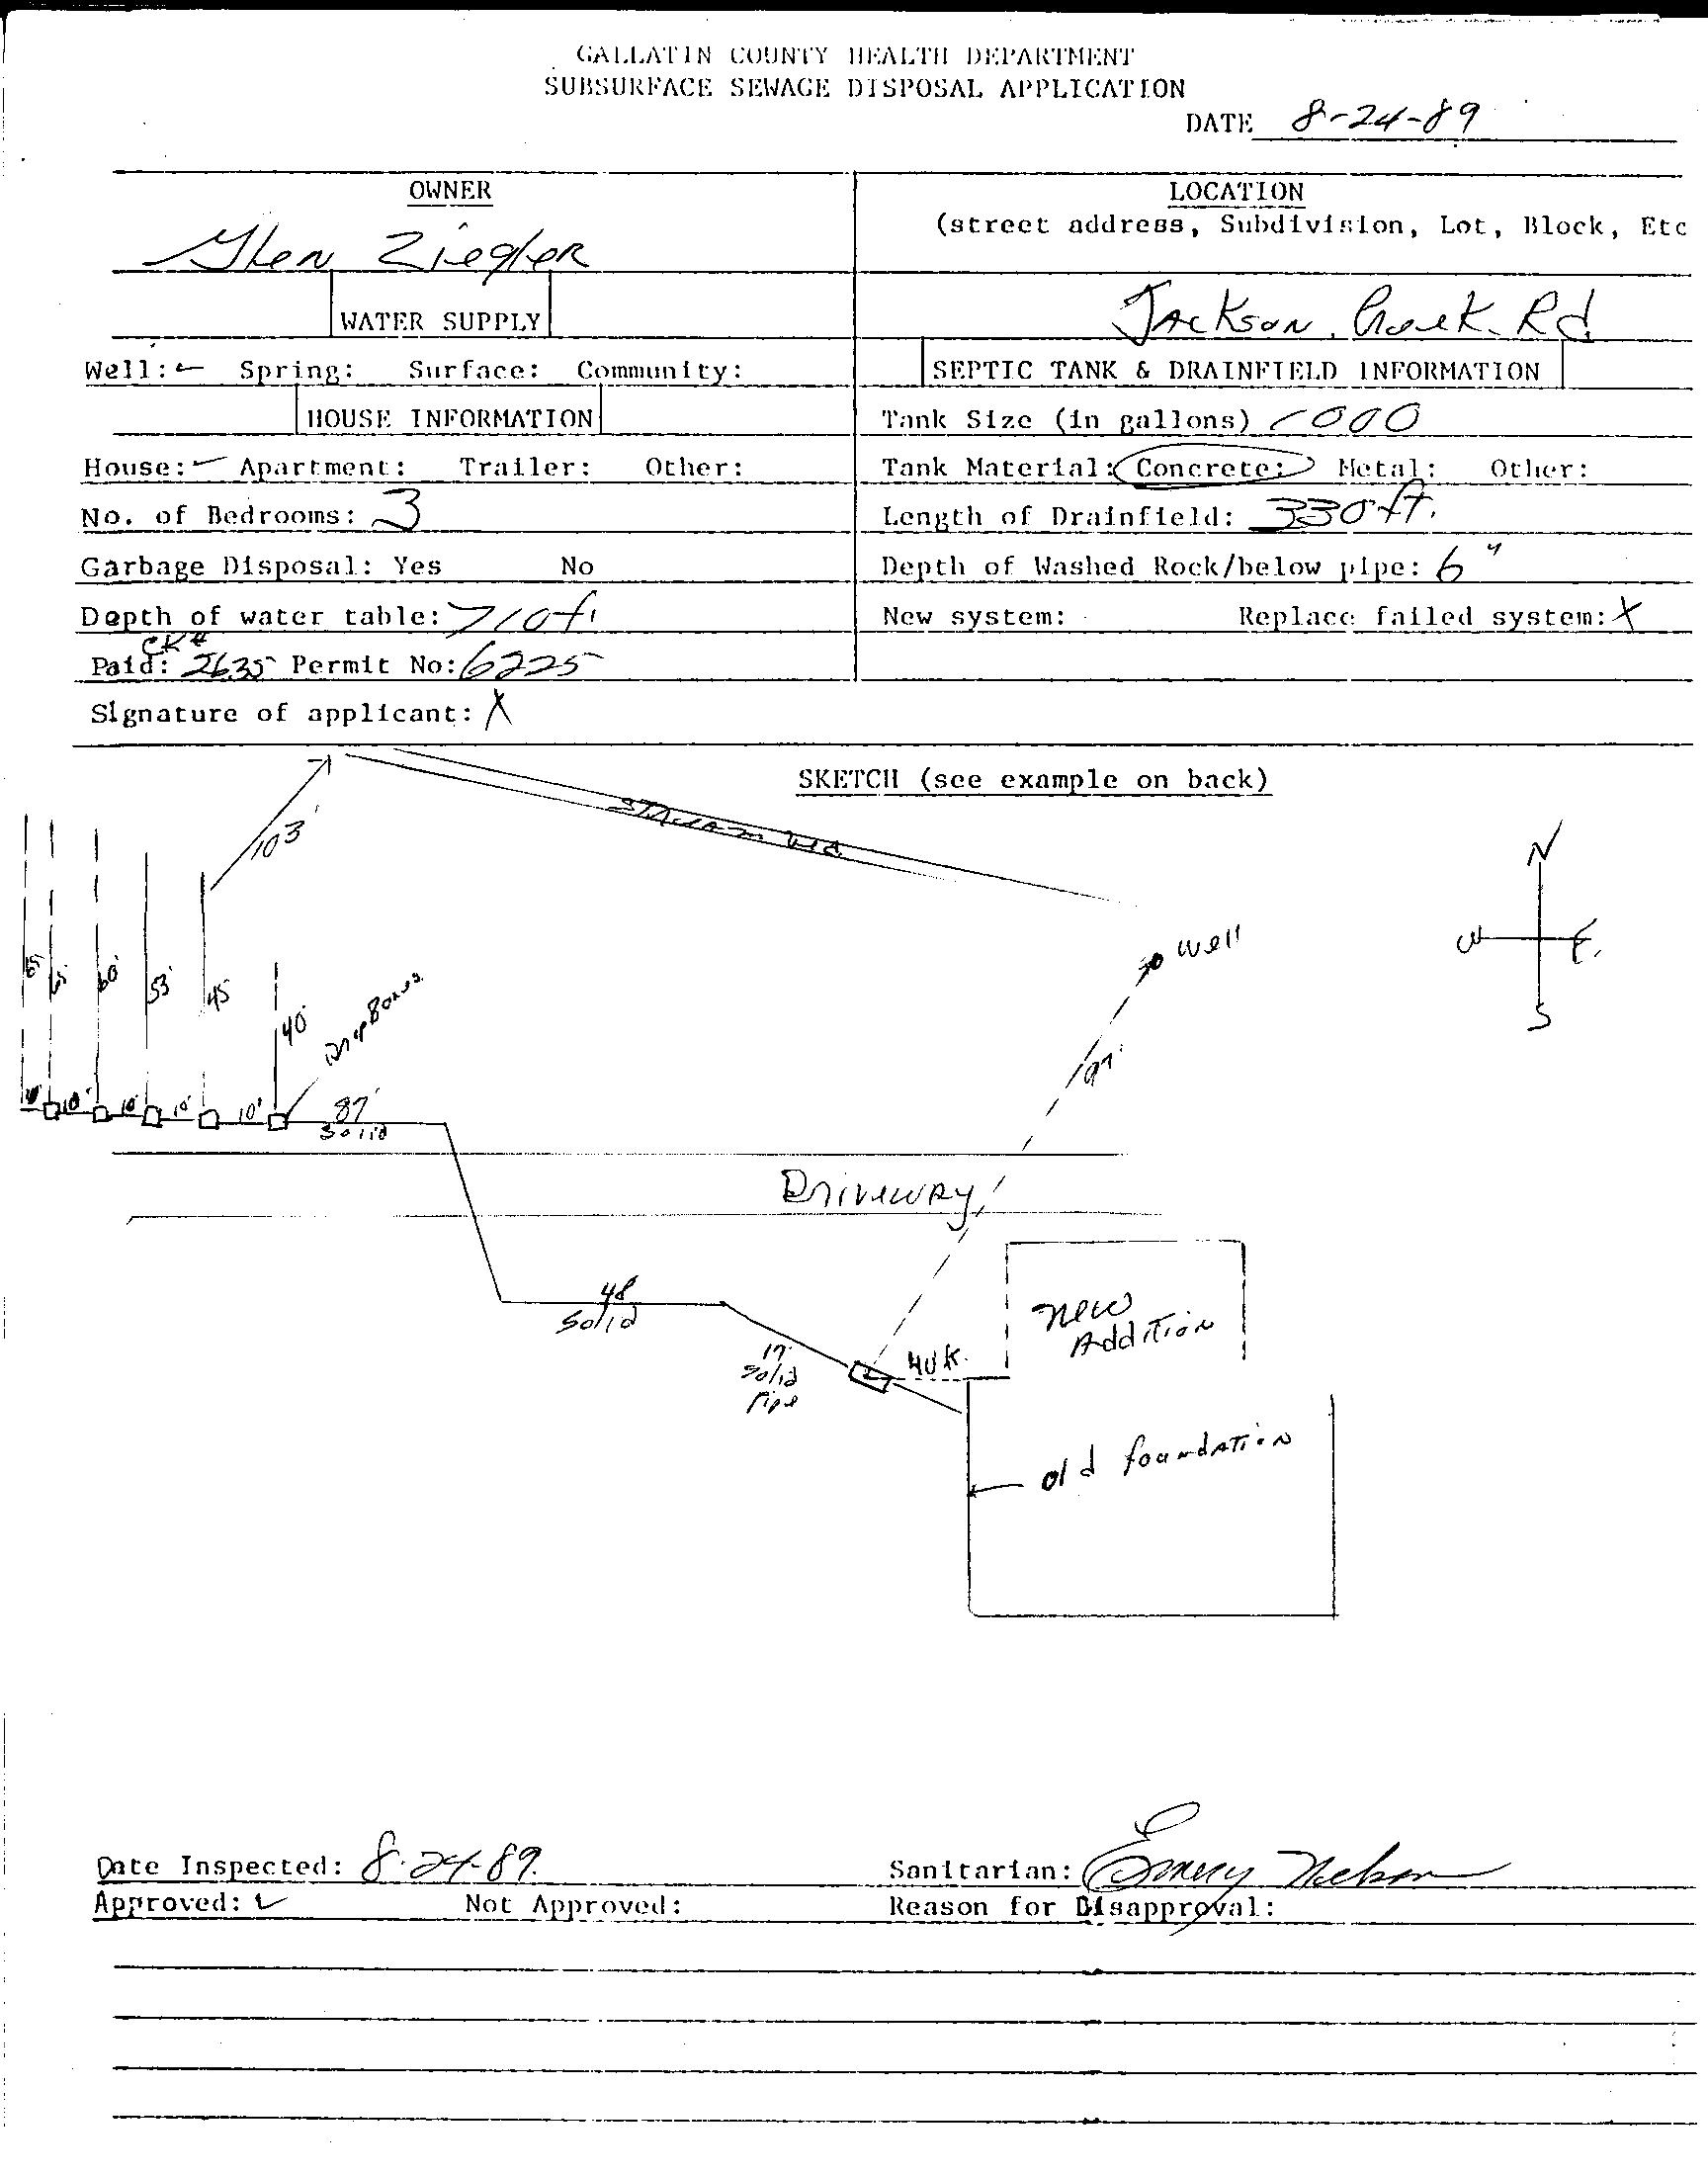 GALLATIN COUNTY HEALTH DEPARTMENT
SUBSURFACE SEWAGE DISPOSAL APPLICATION
DATE 8-24-89
OWNER
Glen Ziegler
WATER SUPPLY
Well: ✓ Spring: Surface: Community:
HOUSE INFORMATION
House: ✓ Apartment: Trailer: Other:
No. of Bedrooms: 3
Garbage Disposal: Yes No
Depth of water table: >10ft
CK#
Paid: 2635 Permit No: 6225
Signature of applicant: X
LOCATION
(street address, Subdivision, Lot, Block, Etc
Jackson Creek Rd
SEPTIC TANK & DRAINFIELD INFORMATION
Tank Size (in gallons) 1000
Tank Material: Concrete: Metal: Other:
Length of Drainfield: 330 ft.
Depth of Washed Rock/below pipe: 6"
New system: Replace failed system: X
SKETCH (see example on back)
103'
Stream bed
N
W E.
S
Well
65' 65' 60' 53' 45 40'
Drop Boxes
97'
10' 10' 10' 10'
87'
Solid
Driveway
48
Solid
17'
Solid
Pipe
New
Addition
old foundation
Date Inspected: 8-24-89.
Sanitarian: Emery Nelson
Approved: ✓ Not Approved:
Reason for Disapproval: